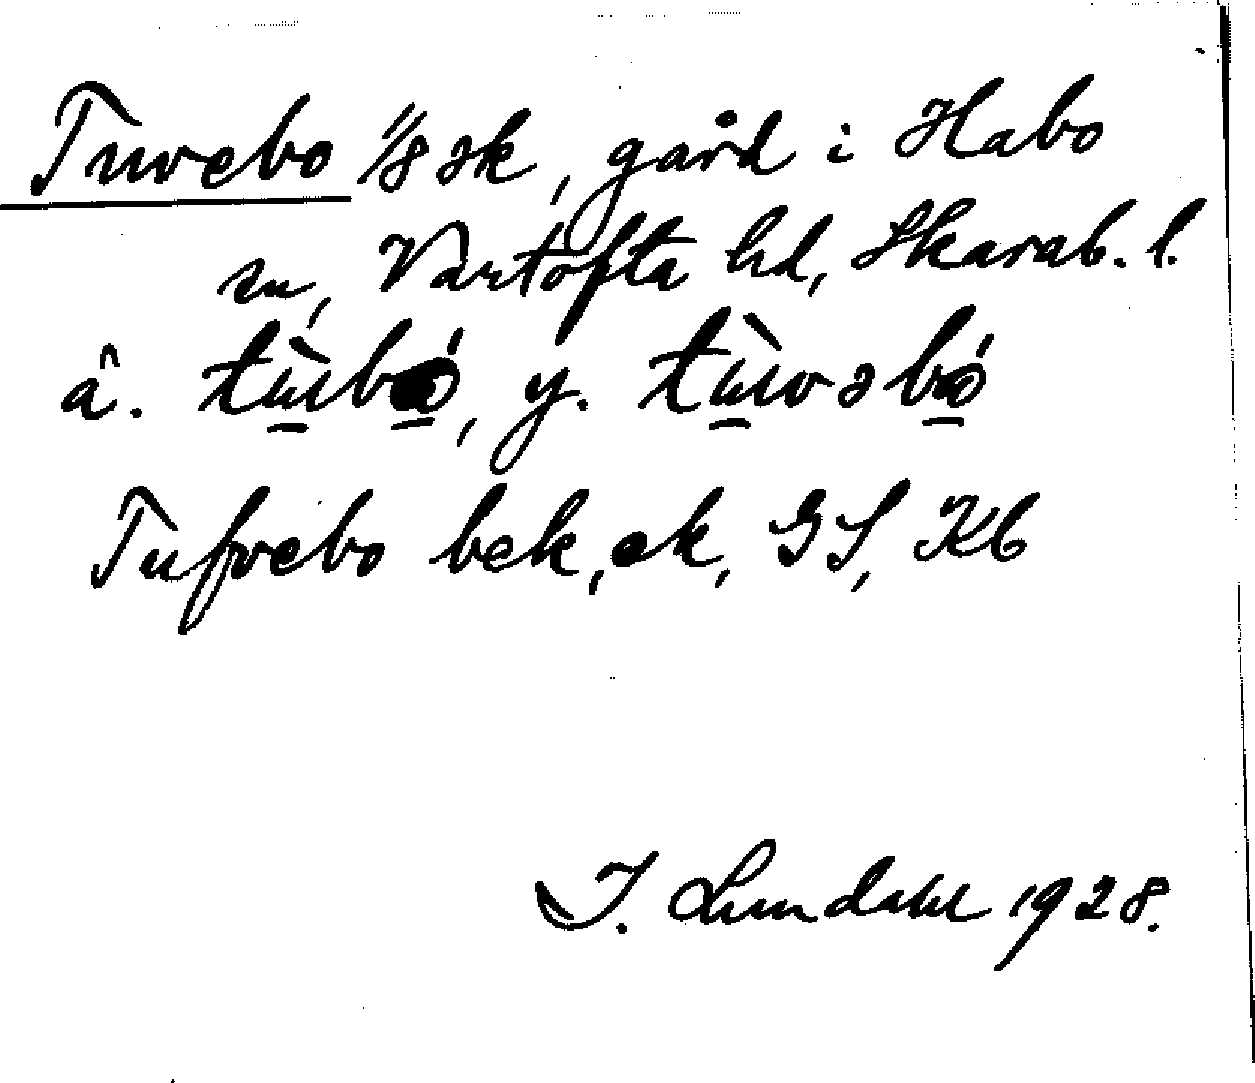 Tuvebo 1/8 sk, gård i Habo
sn, Vartofta hd, Skarab. l.
ä. tù̱bó̱, y. tù̱vəbó̱
Tufvebo bek, ek, GS, Kb
I. Lundahl 1928.